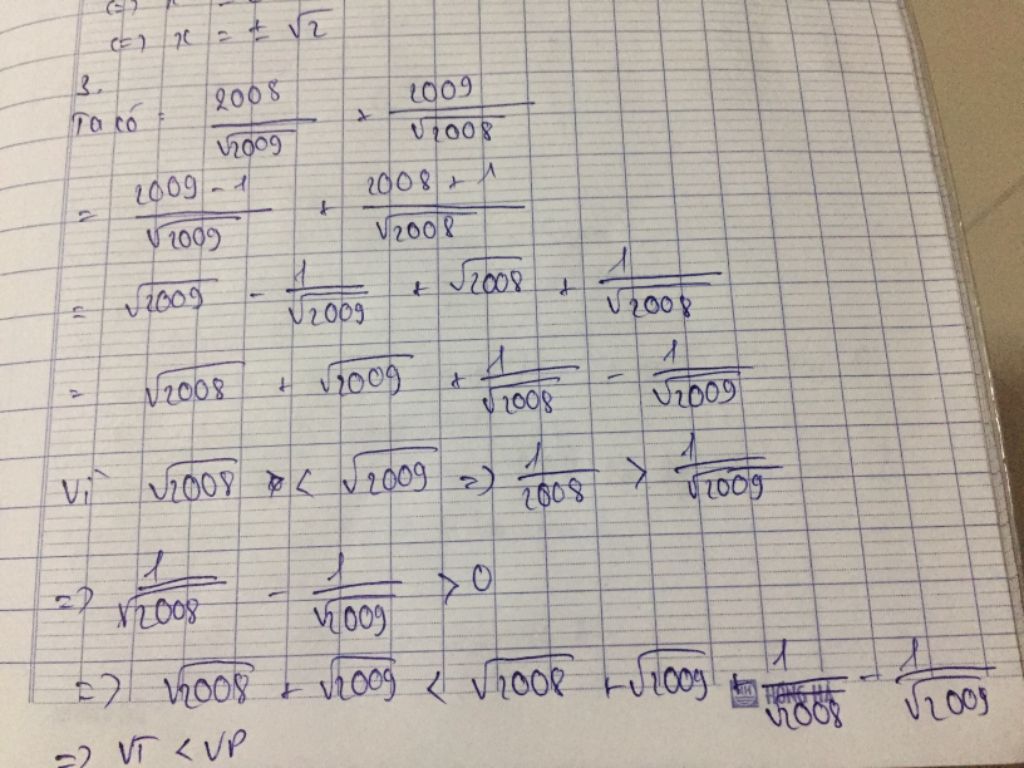 (=) x =
(=) x = ± √2
3.
Ta có: 2008/√2009 + 2009/√2008
= (2009 - 1)/√2009 + (2008 + 1)/√2008
= √2009 - 1/√2009 + √2008 + 1/√2008
= √2008 + √2009 + 1/√2008 - 1/√2009
Vì √2008 < √2009 => 1/2008 > 1/√2009
=> 1/√2008 - 1/√2009 > 0
=> √2008 + √2009 < √2008 + √2009 + 1/√2008 - 1/√2009
HONG HA
=> VT < VP